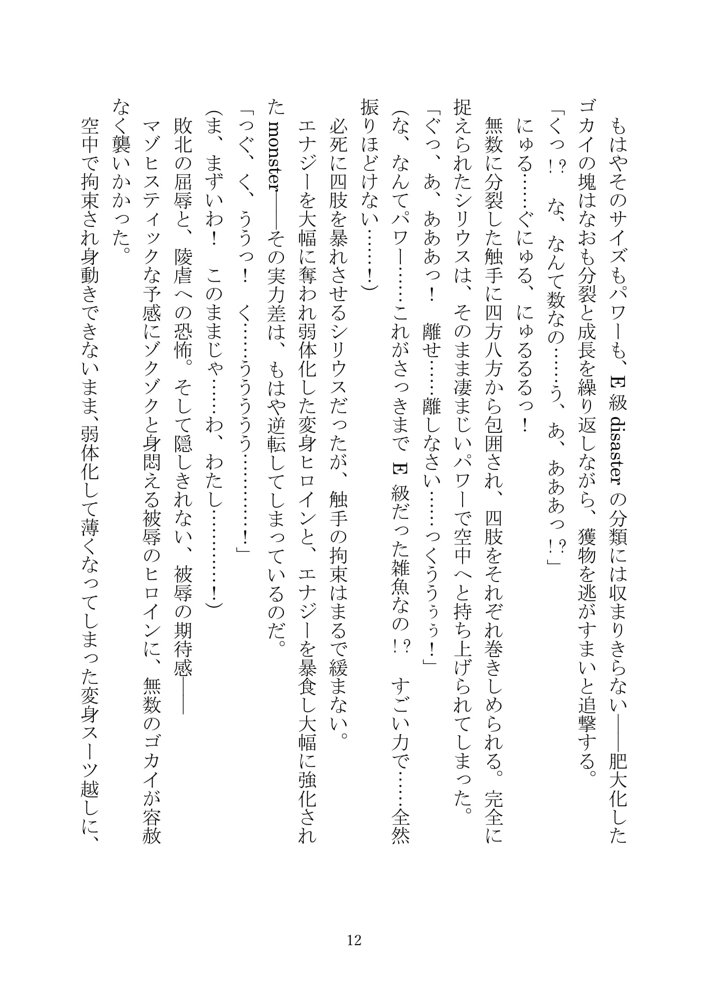 もはやそのサイズもパワーも、E 級 disaster の分類には収まりきらない――肥大化した
ゴカイの塊はなおも分裂と成長を繰り返しながら、獲物を逃がすまいと追撃する。
「くっ!? な、なんて数なの……う、あ、あああっ!?」
にゅる……ぐにゅる、にゅるるるっ!
無数に分裂した触手に四方八方から包囲され、四肢をそれぞれ巻きしめられる。完全に
捉えられたシリウスは、そのまま凄まじいパワーで空中へと持ち上げられてしまった。
「ぐっ、あ、あああっ! 離せ……離しなさい……っくううぅぅ!」
(な、なんてパワー……これがさっきまで E 級だった雑魚なの!? すごい力で……全然
振りほどけない……!)
必死に四肢を暴れさせるシリウスだったが、触手の拘束はまるで緩まない。
エナジーを大幅に奪われ弱体化した変身ヒロインと、エナジーを暴食し大幅に強化され
た monster――その実力差は、もはや逆転してしまっているのだ。
「つぐ、く、ううっ! く……うううう…………!」
(ま、まずいわ! このままじゃ……わ、わたし…………!)
敗北の屈辱と、陵虐への恐怖。そして隠しきれない、被辱の期待感――
マゾヒスティックな予感にゾクゾクと身悶える被辱のヒロインに、無数のゴカイが容赦
なく襲いかかった。
空中で拘束され身動きできないまま、弱体化して薄くなってしまった変身スーツ越しに、
12